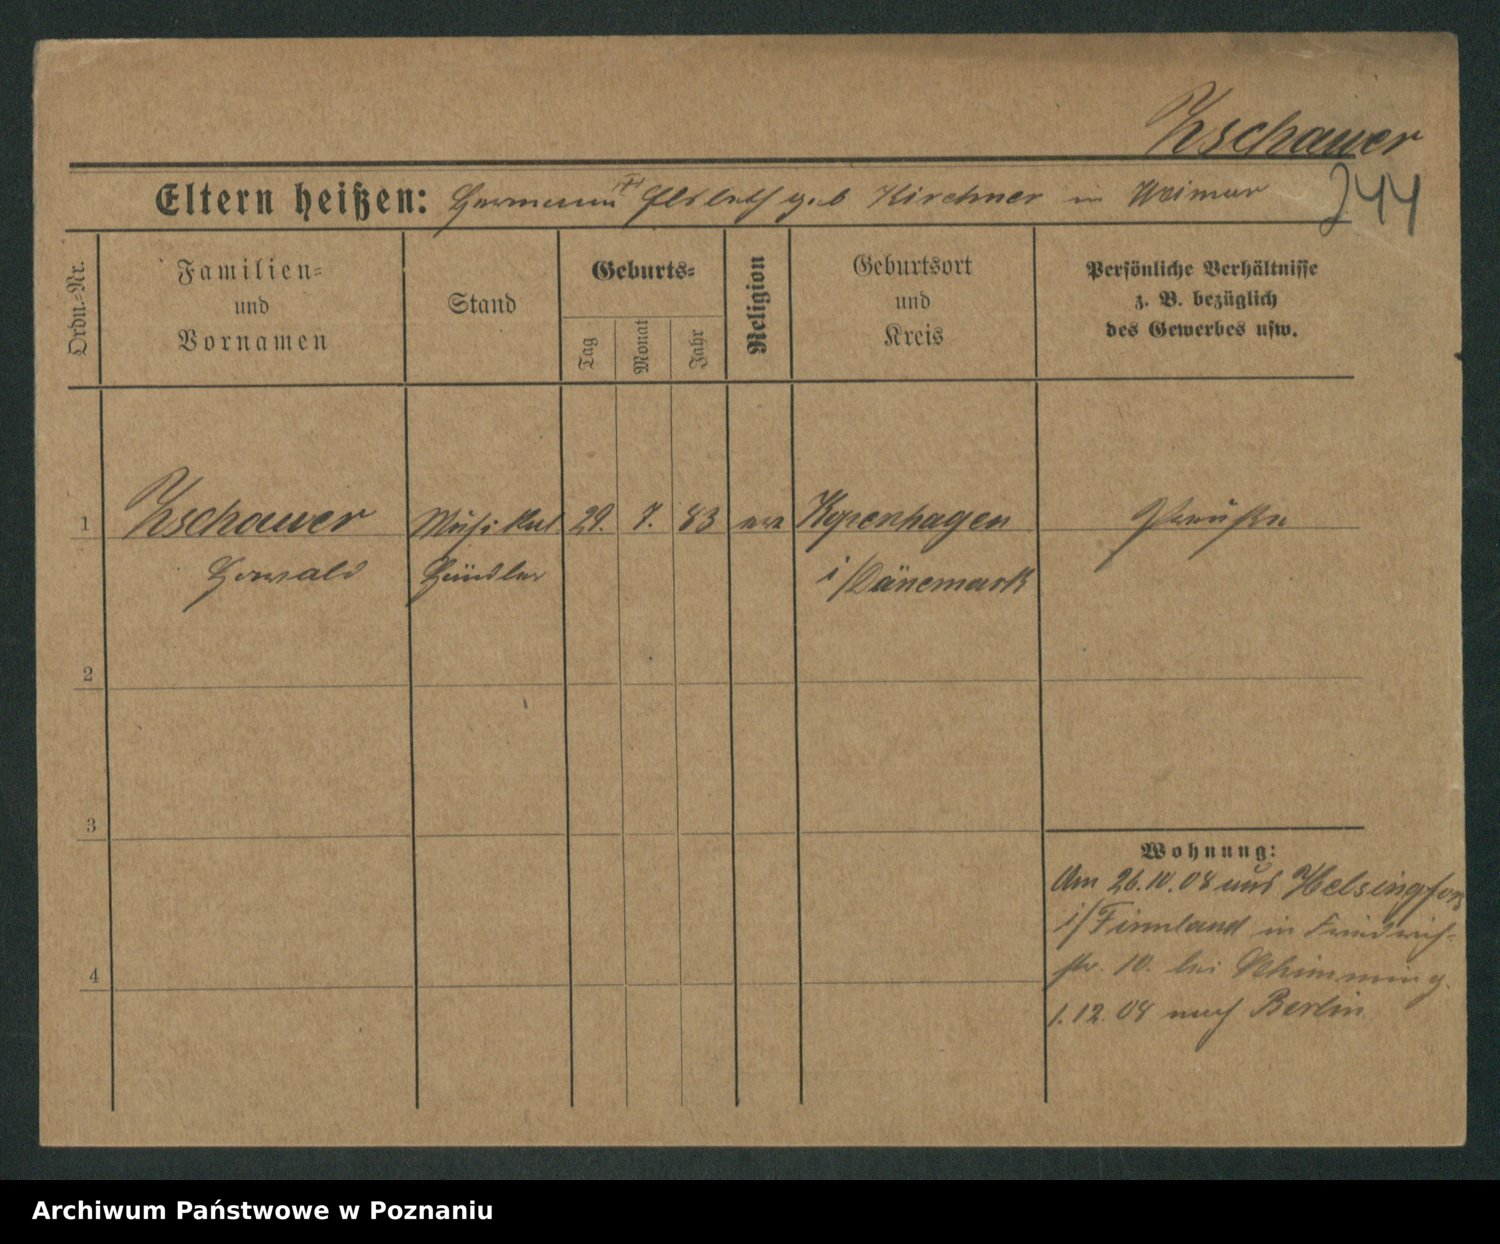 Zschauer
Eltern heißen: Hermann † geb Kirchner in Weimar
244
Ordn.=Nr.
Familien=
und
Vornamen
Stand
Geburts=
Tag
Monat
Jahr
Religion
Geburtsort
und
Kreis
Persönliche Verhältnisse
z. B. bezüglich
des Gewerbes usw.
1 Zschauer Musikal. 29. 7. 83 Kopenhagen Preuße
Händler i/Dänemark
2
3
Wohnung:
Am 26.10.08 aus Helsingfors
i/Finnland in Friedrich=
str. 10. bei Schimming.
4
1.12.08 nach Berlin
Archiwum Państwowe w Poznaniu